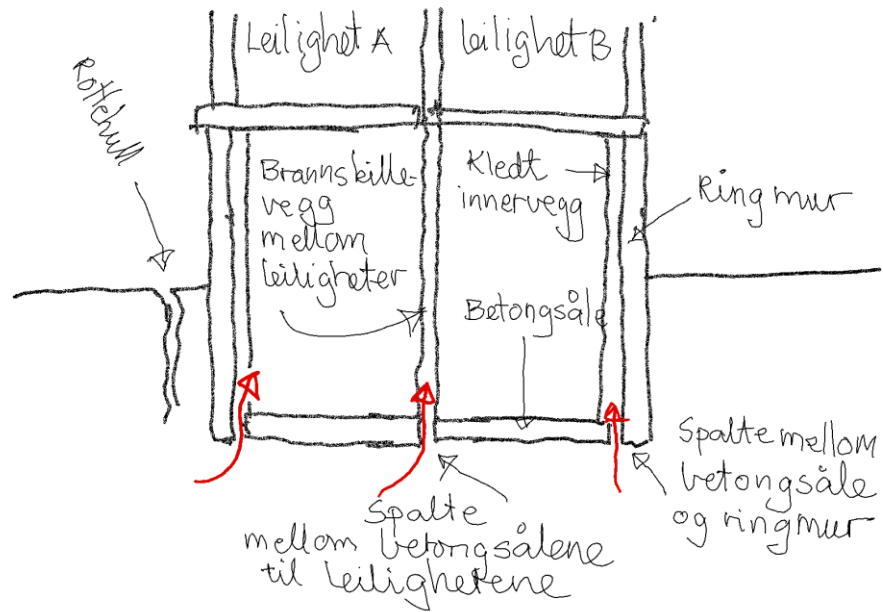 Leilighet A
Leilighet B
Rottehull
Brannskille-
vegg
mellom
leiligheter
Kledt
innervegg
Ringmur
Betongsåle
Spalte mellom
betongsåle
og ringmur
Spalte
mellom betongsålene
til leilighetene